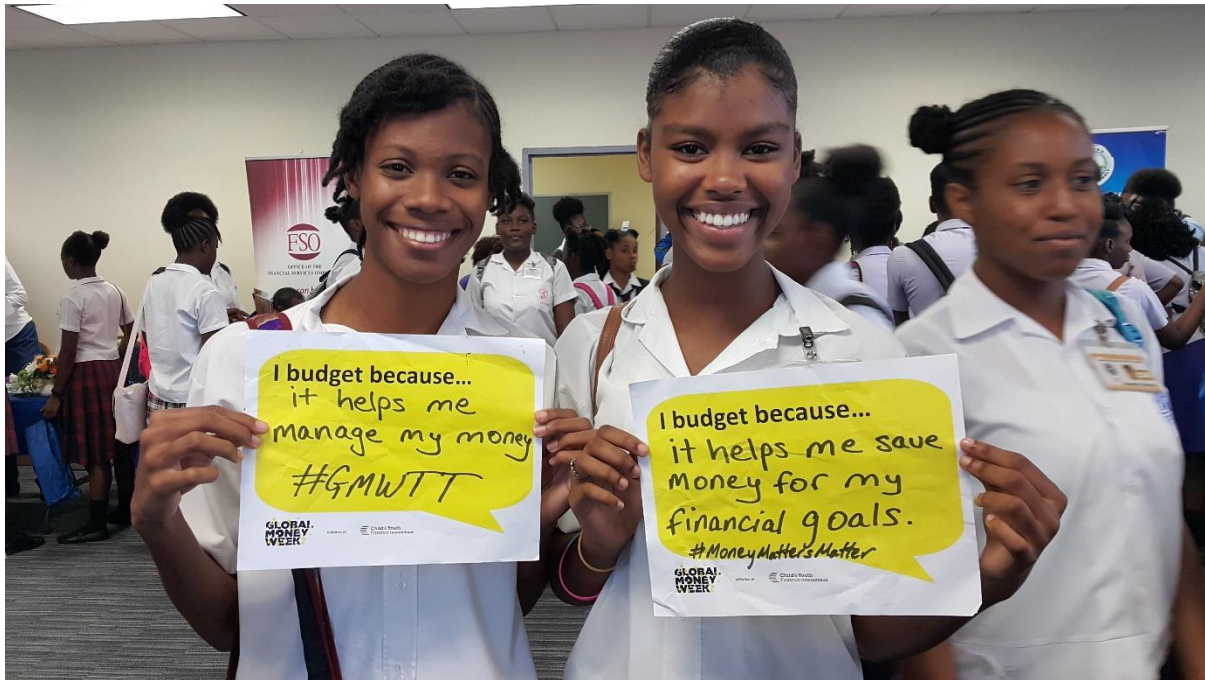 FSO
OFFICE OF THE
FINANCIAL SERVICES OMB
I budget because...
it helps me
manage my money
#GMWTT
GLOBAL
MONEY
WEEK
Child & Youth
Finance International
I budget because...
it helps me save
money for my
financial goals.
#MoneyMattersMatter
GLOBAL
MONEY
WEEK
Child & Youth
Finance International